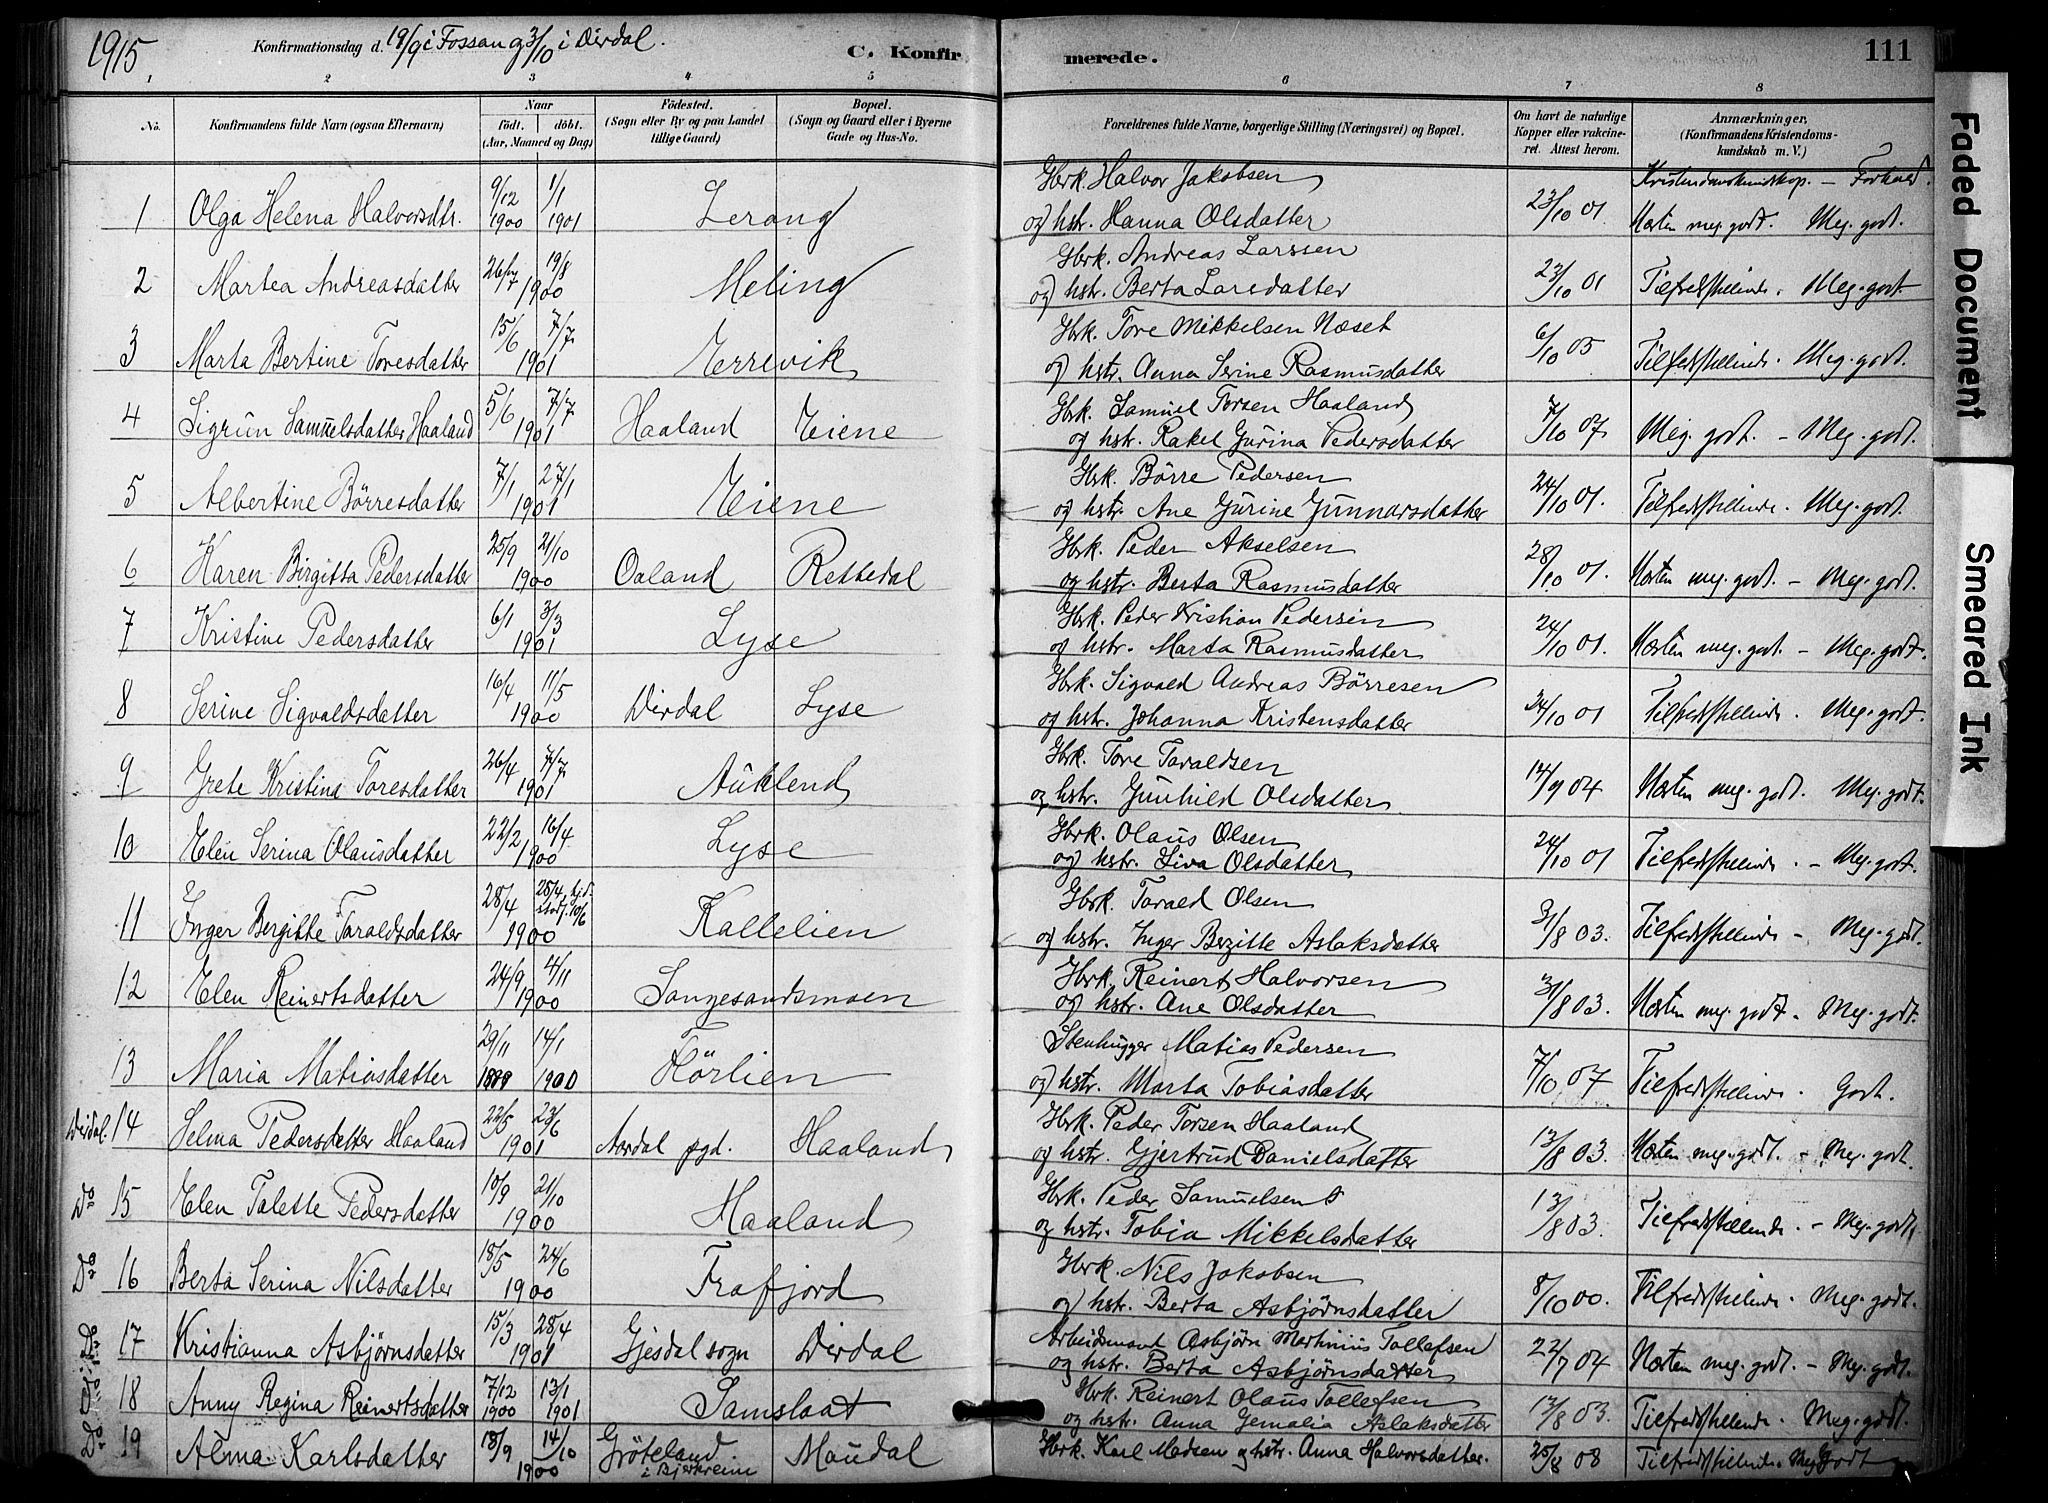 1915
Konfirmationsdag d. 19/9 i Fossan og 3/10 i Dirdal.
C. Konfirmerede.
111
1 2 3 4 5 6 7 8
No. Konfirmandens fulde Navn (ogsaa Efternavn) Naar født. døbt. (Aar, Maaned og Dag) Fødested. (Sogn eller By og paa Landet tillige Gaard) Bopæl. (Sogn og Gaard eller i Byerne Gade og Hus-No.) Forældrenes fulde Navne, borgerlige Stilling (Næringsvei) og Bopæl. Om havt de naturlige Kopper eller vaccineret. Attest herom. Anmærkninger, (Konfirmandens Kristendomskundskab m. V.)
Kristendomskundskap. – Forhold.
1 Olga Helena Halvorsdtr. 9/12 1900 1/1 1901 Lerang Gbrk. Halvor Jakobsen og hstr. Hanna Olsdatter 23/10 01 Næsten meg. godt. Meg. godt.
2 Martea Andreasdatter 26/7 19/8 1900 Meling Gbrk. Andreas Larssen og hstr. Berta Larsdatter 23/10 01 Tilfredsstillende. Meg. godt.
3 Marta Bertine Toresdatter 15/6 7/7 1901 Errevik Gbrk. Tore Mikkelsen Næset og hstr. Anna Serine Rasmusdatter 6/10 05 Tilfredsstillende. Meg. godt.
4 Sigrun Samuelsdatter Haaland 5/6 7/7 1901 Haaland Eiene Gbrk. Samuel Torsen Haaland og hstr. Rakel Gurina Pedersdatter 7/10 07 Meg. godt. – Meg. godt.
5 Albertine Børresdatter 7/1 27/1 1901 Eiene Gbrk. Børre Pedersen og hstr. Ane Gurine Gunnarsdatter 24/10 01. Tilfredsstillende. Meg. godt.
6 Karen Birgitta Pedersdatter 25/9 21/10 1900 Oaland Rettedal Gbrk. Peder Akselsen og hstr. Berta Rasmusdatter 28/10 01. Næsten meg. godt. – Meg. godt.
7 Kristine Pedersdatter 6/1 3/3 1901 Lyse Gbrk. Peder Kristian Pedersen og hstr. Marta Rasmusdatter 24/10 01. Næsten meg. godt. – Meg. godt.
8 Serine Sigvaldsdatter 16/4 11/5 1900 Dirdal Lyse Gbrk. Sigvald Andreas Børresen og hstr. Johanna Kristensdatter 24/10 01 Tilfredsstillende. Meg. godt.
9 Grete Kristina Toresdatter 26/4 7/7 1901 Auklend Gbrk. Tore Taraldsen og hstr. Gunhild Olsdatter 12/9 04 Næsten meg. godt. Meg. godt.
10 Elen Serina Olausdatter 22/2 16/4 1900 Lyse Gbrk. Olaus Olsen og hstr. Siva Olsdatter 24/10 01 Tilfredsstillende. – Meg. godt.
11 Inger Bergitte Taraldsdatter 28/4 28/4 hjd. stadf. 10/6 1900 Kallelien Gbrk. Tarald Olsen og hstr. Inger Bergitte Aslaksdatter 31/8 03. Tilfredsstillende – Meg. godt.
12 Elen Reinertsdatter 24/9 4/11 1900 Songesandsmoen Gbrk. Reinert Halvorsen og hstr. Ane Olsdatter 31/8 03. Næsten meg. godt. Meg. godt.
13 Maria Matiasdatter 29/11 1899 14/1 1900 Hörlien Stenhugger Matias Pedersen og hstr. Marta Tobiasdatter 7/10 07 Tilfredsstillende. Godt.
Dirdal. 14 Selma Pedersdatter Haaland 22/5 23/6 1901 Aardal pgd. Haaland Gbrk. Peder Torsen Haaland og hstr. Gjertrud Danielsdatter 13/8 03. Næsten meg. godt. – Meg. godt.
Do 15 Elen Talette Pedersdatter 10/9 21/10 1900 Haaland Gbrk. Peder Samuelsen og hstr. Tobia Mikkelsdatter 13/8 03. Tilfredsstillende. – Meg. godt.
Do 16 Berta Serina Nilsdatter 18/5 24/6 1900 Frafjord Gbrk. Nils Jakobsen og hstr. Berta Asbjørnsdatter 8/10 00. Tilfredsstillende. Meg. godt.
Do 17 Kristianna Asbjørnsdatter 15/3 28/4 1901 Gjesdal sogn Dirdal Arbeidsmand Asbjørn Martinius Tollefsen og hstr. Berta Asbjørnsdatter 22/7 04 Næsten meg. godt. – Meg. godt.
Do 18 Anny Regina Reinertsdatter 7/12 1900 13/1 1901 Samslaat Gbrk. Reinert Olaus Tollefsen og hstr. Anna Jemalia Aslaksdatter 13/8 03. Tilfredsstillende. Meg. godt.
Do 19 Alma Karlsdatter 18/9 14/10 1900 Gröteland i Bjerkreim Maudal Gbrk. Karl Madsen og hstr. Anna Halvorsdatter. 25/8 08 Tilfredsstillende. Meg. godt
Faded Document
Smeared Ink